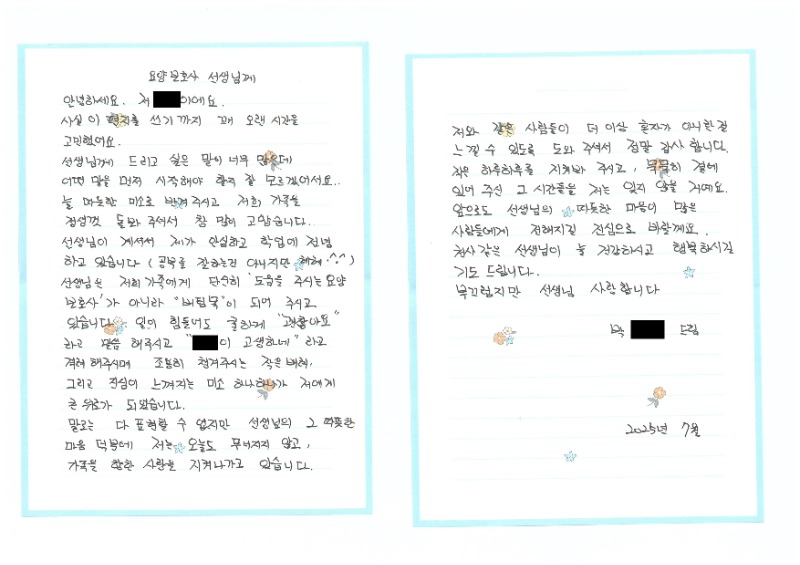 요양보호사 선생님께
안녕하세요. 저 이에요.
사실 이 편지를 쓰기까지 꽤 오랜 시간을
고민했어요.
선생님께 드리고 싶은 말이 너무 많은데
어떤 말을 먼저 시작해야 할지 잘 모르겠어서요..
늘 따뜻한 미소로 반겨주시고 저희 가족을
정성껏 돌봐 주셔서 참 많이 고맙습니다.
선생님이 계셔서 제가 안심하고 학업에 전념
하고 있습니다 (공부를 잘하는건 아니지만 헤헤 ^.^)
선생님은 저희 가족에게 단순히 '도움을 주시는 요양
보호사'가 아니라 "버팀목"이 되어 주시고
있습니다. 일이 힘들어도 굳하게 "괜찮아요"
라고 말씀 해주시고 " 이 고생하네" 라고
격려 해주시며 조용히 챙겨주시는 작은 배려,
그리고 진심이 느껴지는 미소 하나하나가 저에게
큰 위로가 되었습니다.
말로는 다 표현할 수 없지만 선생님의 그 따뜻한
마음 덕분에 저는 오늘도 무너지지 않고,
가족을 향한 사랑을 지켜나가고 있습니다.
저와 같은 사람들이 더 이상 혼자가 아니란걸
느낄 수 있도록 도와 주셔서 정말 감사합니다.
작은 하루하루를 지켜봐 주시고, 묵묵히 곁에
있어 주신 그 시간들을 저는 잊지 않을 거예요.
앞으로도 선생님의 따뜻한 마음이 많은
사람들에게 전해지길 진심으로 바랄께요.
천사같은 선생님이 늘 건강하시고 행복하시길
기도 드립니다.
부끄럽지만 선생님 사랑합니다
박 드림
2025년 7월